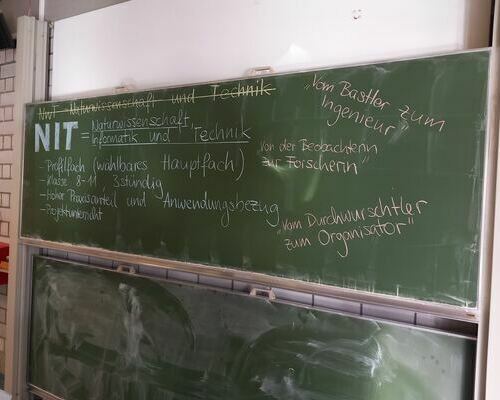 NwT Naturwissenschaft und Technik
NIT = Naturwissenschaft,
Informatik und Technik
- Profilfach (wählbares Hauptfach)
- Klasse 8-11 3stündig
- Hoher Praxisanteil und Anwendungsbezug
- Projektunterricht
"Vom Bastler zum
Ingenieur"
"Von der Beobachterin
zur Forscherin"
"Vom Durchwurschtler
zum Organisator"